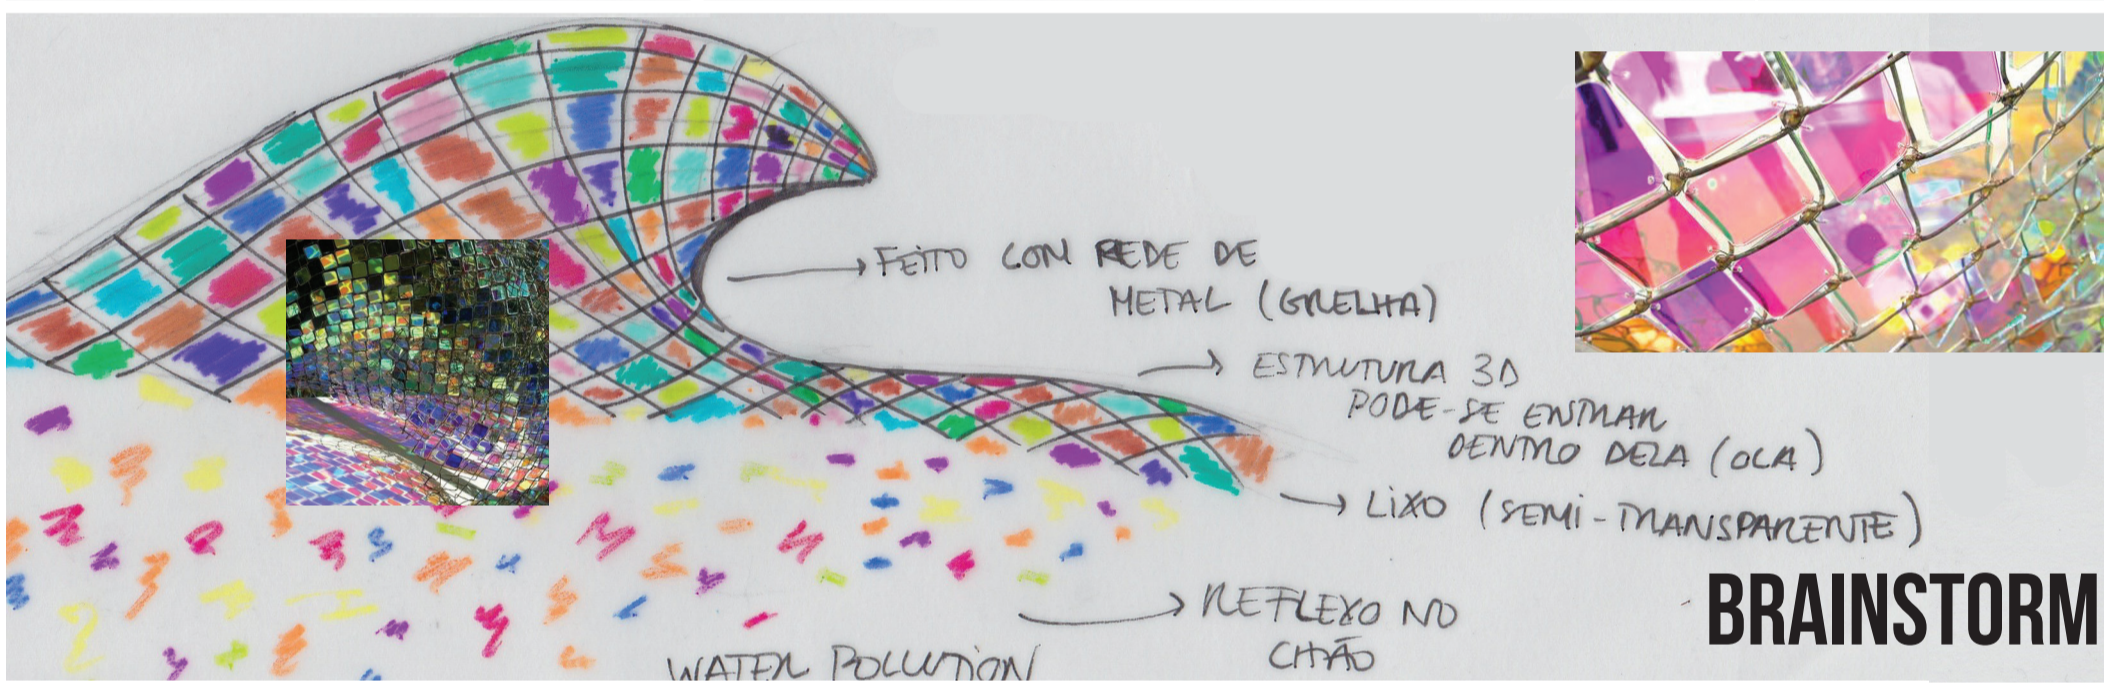 FEITO CON REDE DE
METAL (GRELHA)
ESTRUTURA 3D
PODE-SE ENTRAR
DENTRO DELA (OLA)
LIXO (SEMI-TRANSPARENTE)
REFLEXO NO
CHÃO
WATER POLLUTION
BRAINSTORM